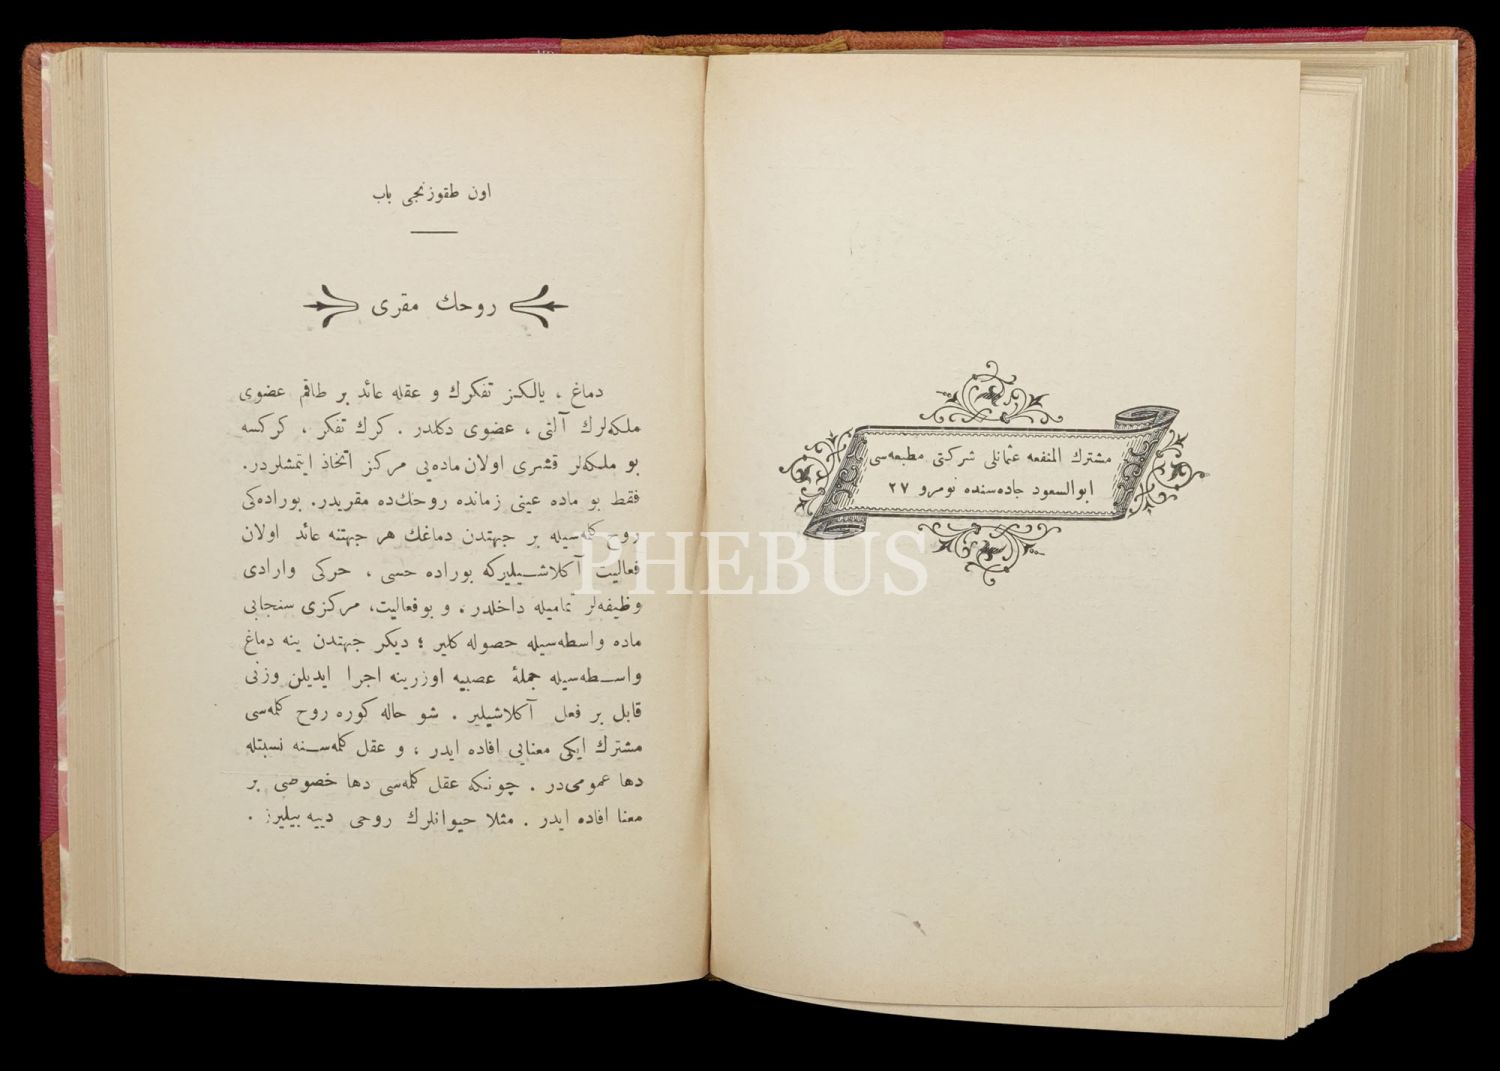 مشترك المنفعه عثمانلی شركتی مطبعه‌سی
ابوالسعود جاده‌سنده نومرو ٢٧
اون طقوزنجی باب
روحك مقری
دماغ ، يالكز تفكرك و عقله عائد بر طاقم عضوی
ملكه‌لرك آلتی ، عضوی دكلدر . كرك تفكر ، كركسه
بو ملكه‌لر قشری اولان ماده‌یی مركز اتخاذ ايتمشلردر.
فقط بو ماده عینی زمانده روحك‌ده مقريدر. بوراده‌كی
روح كله‌سيله بر جهتدن دماغك هر جهتنه عائد اولان
فعاليت آكلاشـيليركه بوراده حسی ، حركی وارادی
وظيفه‌لر تماميله داخلدر ، و بوفعاليت، مركزی سنجابی
ماده واسطه‌سيله حصوله كلير ؛ ديكر جهتدن ينه دماغ
واسـطه‌سيله جملهٔ عصبيه اوزرينه اجرا ايديلن وزنی
قابل بر فعل آكلاشيلير . شو حاله كوره روح كله‌سی
مشترك ايكی معنایی افاده ايدر ، و عقل كله‌سـنه نسبتله
دها عمومی‌در . چونكه عقل كله‌سی دها خصوصی بر
معنا افاده ايدر . مثلا حيوانلرك روحی دييه بيليرز .
PHEBUS